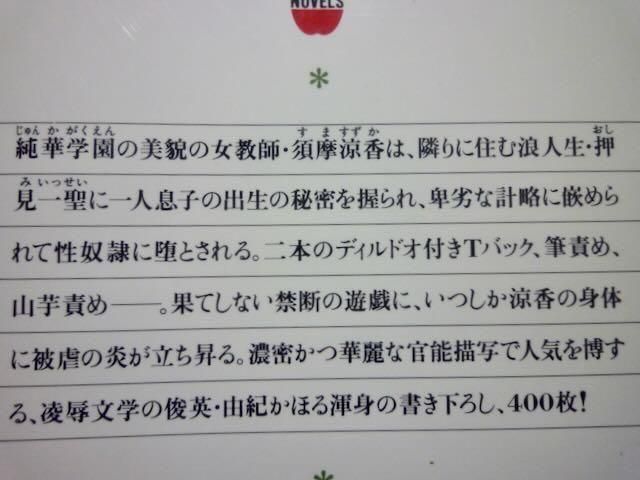 NOVELS
*
じゅんかがくえん すますずか おし
純華学園の美貌の女教師・須摩涼香は、隣りに住む浪人生・押
みいっせい
見一聖に一人息子の出生の秘密を握られ、卑劣な計略に嵌めら
れて性奴隷に堕とされる。二本のディルドオ付きTバック、筆責め、
山芋責め――。果てしない禁断の遊戯に、いつしか涼香の身体
に被虐の炎が立ち昇る。濃密かつ華麗な官能描写で人気を博す
る、凌辱文学の俊英・由紀かほる渾身の書き下ろし、400枚!
*